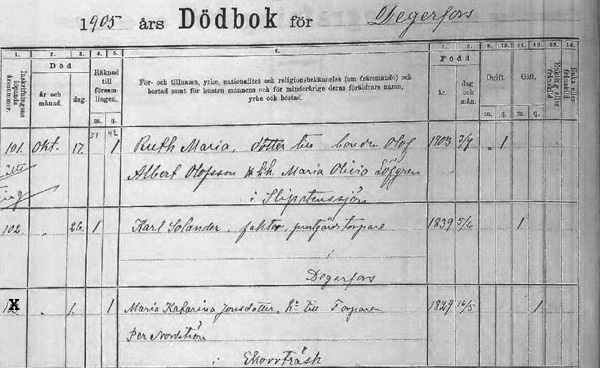 1905 års Dödbok för Degerfors
1. 2. 3. 4. 5. 6. 7. 8. 9. 10. 11. 12. 13. 14.
Död Född
Räknad till församlingen. För- och tillnamn, yrke, nationalitet och religionsbekännelse (om främmande) och bostad samt för hustru mannens och för minderårige deras föräldrars namn, yrke och bostad. Ogift. Gift.
år och månad. dag. m. q. år. m. q. m. q.
51 42
101. Okt. 17. 1 Ruth Maria, dotter till bonden Olof 1903 1
Albert Olofsson Maria Olivia Löfgren
i Slipstenssjön
102. " 26. 1 Karl Solander, faktor, torpare 1839 5/6 1
i
Degerfors
X " 1. 1 Maria Katarina Jonsdotter, till Torparen 1829 16/5 1
Per Nordström
i Ekorrträsk